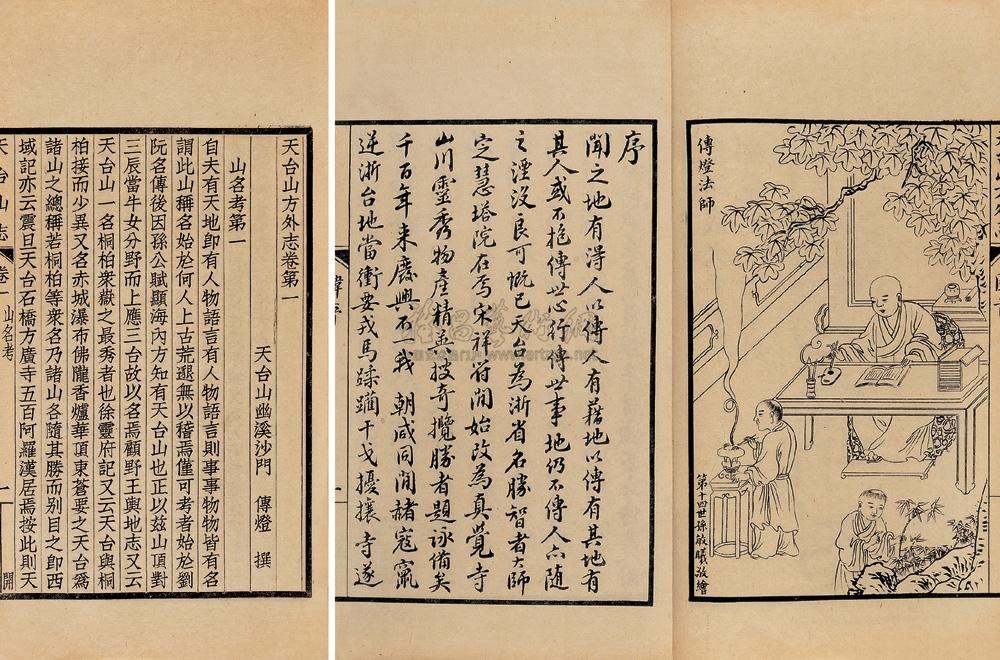 傳燈法師
第十四世孫敏曦敬繪
序
聞之地有得人以傳人有藉地以傳有其地有
其人或不抱傳世心行傳世事地仍不傳人亦隨
之湮沒良可慨已天台為浙省名勝智者大師
定慧塔院在焉宋祥符間始改為真覺寺
山川靈秀物產精英披奇攬勝者題詠備矣
千百年來廢興不一我 朝咸同間赭寇竄
逆浙台地當衝要戎馬蹂躪干戈擾攘寺遂
天台山方外志卷第一
天台山幽溪沙門 傳燈 撰
山名考第一
自夫有天地卽有人物語言有人物語言則事事物物皆有名
謂此山稱名始於何人上古荒邈無以稽焉僅可考者始於劉
阮名傳後因孫公賦顯海內方知有天台山也正以兹山頂對
三辰當牛女分野而上應三台故以名焉顧野王輿地志又云
天台山一名桐柏衆嶽之最秀者也徐靈府記又云天台與桐
柏接而少異又名赤城瀑布佛隴香爐華頂東蒼要之天台爲
諸山之總稱若桐柏等衆名乃諸山各隨其勝而别目之卽西
域記亦云震旦天台石橋方廣寺五百阿羅漢居焉按此則天
天台山志 卷一 山名考 一 開